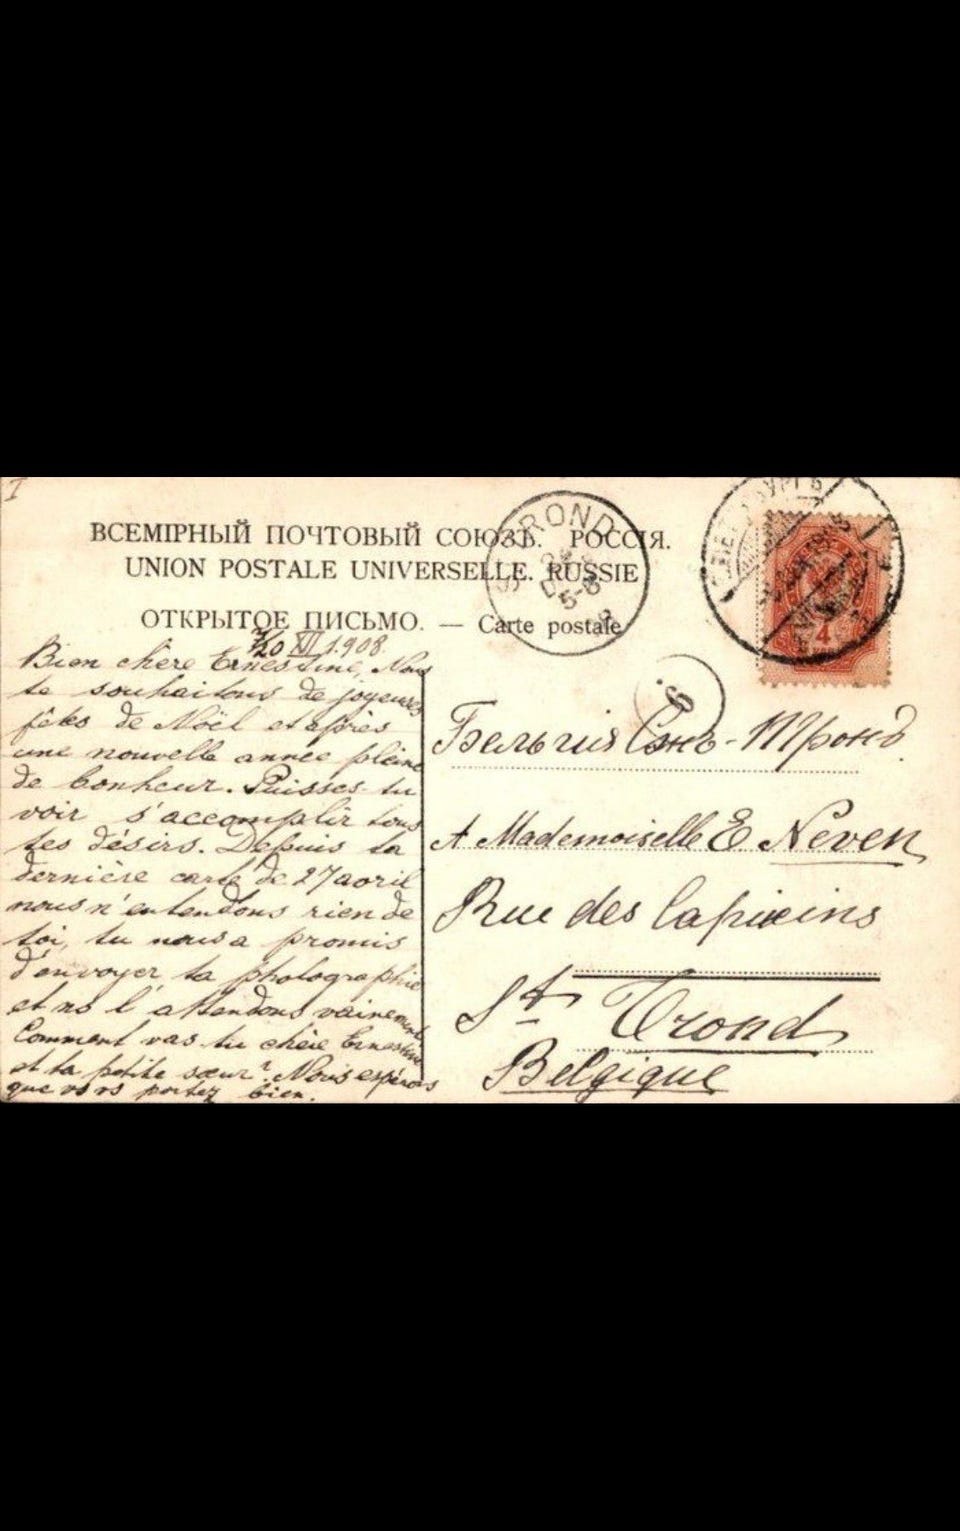 I
ВСЕМІРНЫЙ ПОЧТОВЫЙ СОЮЗЪ. РОССІЯ.
UNION POSTALE UNIVERSELLE. RUSSIE
ОТКРЫТОЕ ПИСЬМО. — Carte postale
XII 1908.
Bien chère Ernestine, Nous
te souhaitons de joyeuses
fêtes de Noël et après
une nouvelle année pleine
de bonheur. Puisses-tu
voir s'accomplir tous
tes désirs. Depuis ta
dernière carte de 27 avril
nous n'entendons rien de
toi, tu nous a promis
d'envoyer ta photographie
et ns l'attendons vainement
Comment vas tu chère Ernestine
et ta petite sœur? Nous espérons
que vous portez bien.
ROND
5-6
4
6
Бельгия Сэнъ-Тронд
A Mademoiselle E Neven
Rue des Capucins
St Trond
Belgique